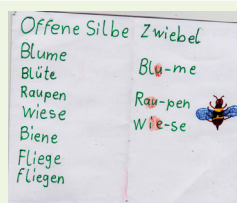 Offene Silbe
Blume
Blüte
Raupen
Wiese
Biene
Fliege
fliegen
Zwiebel
Blu-me
Rau-pen
Wie-se